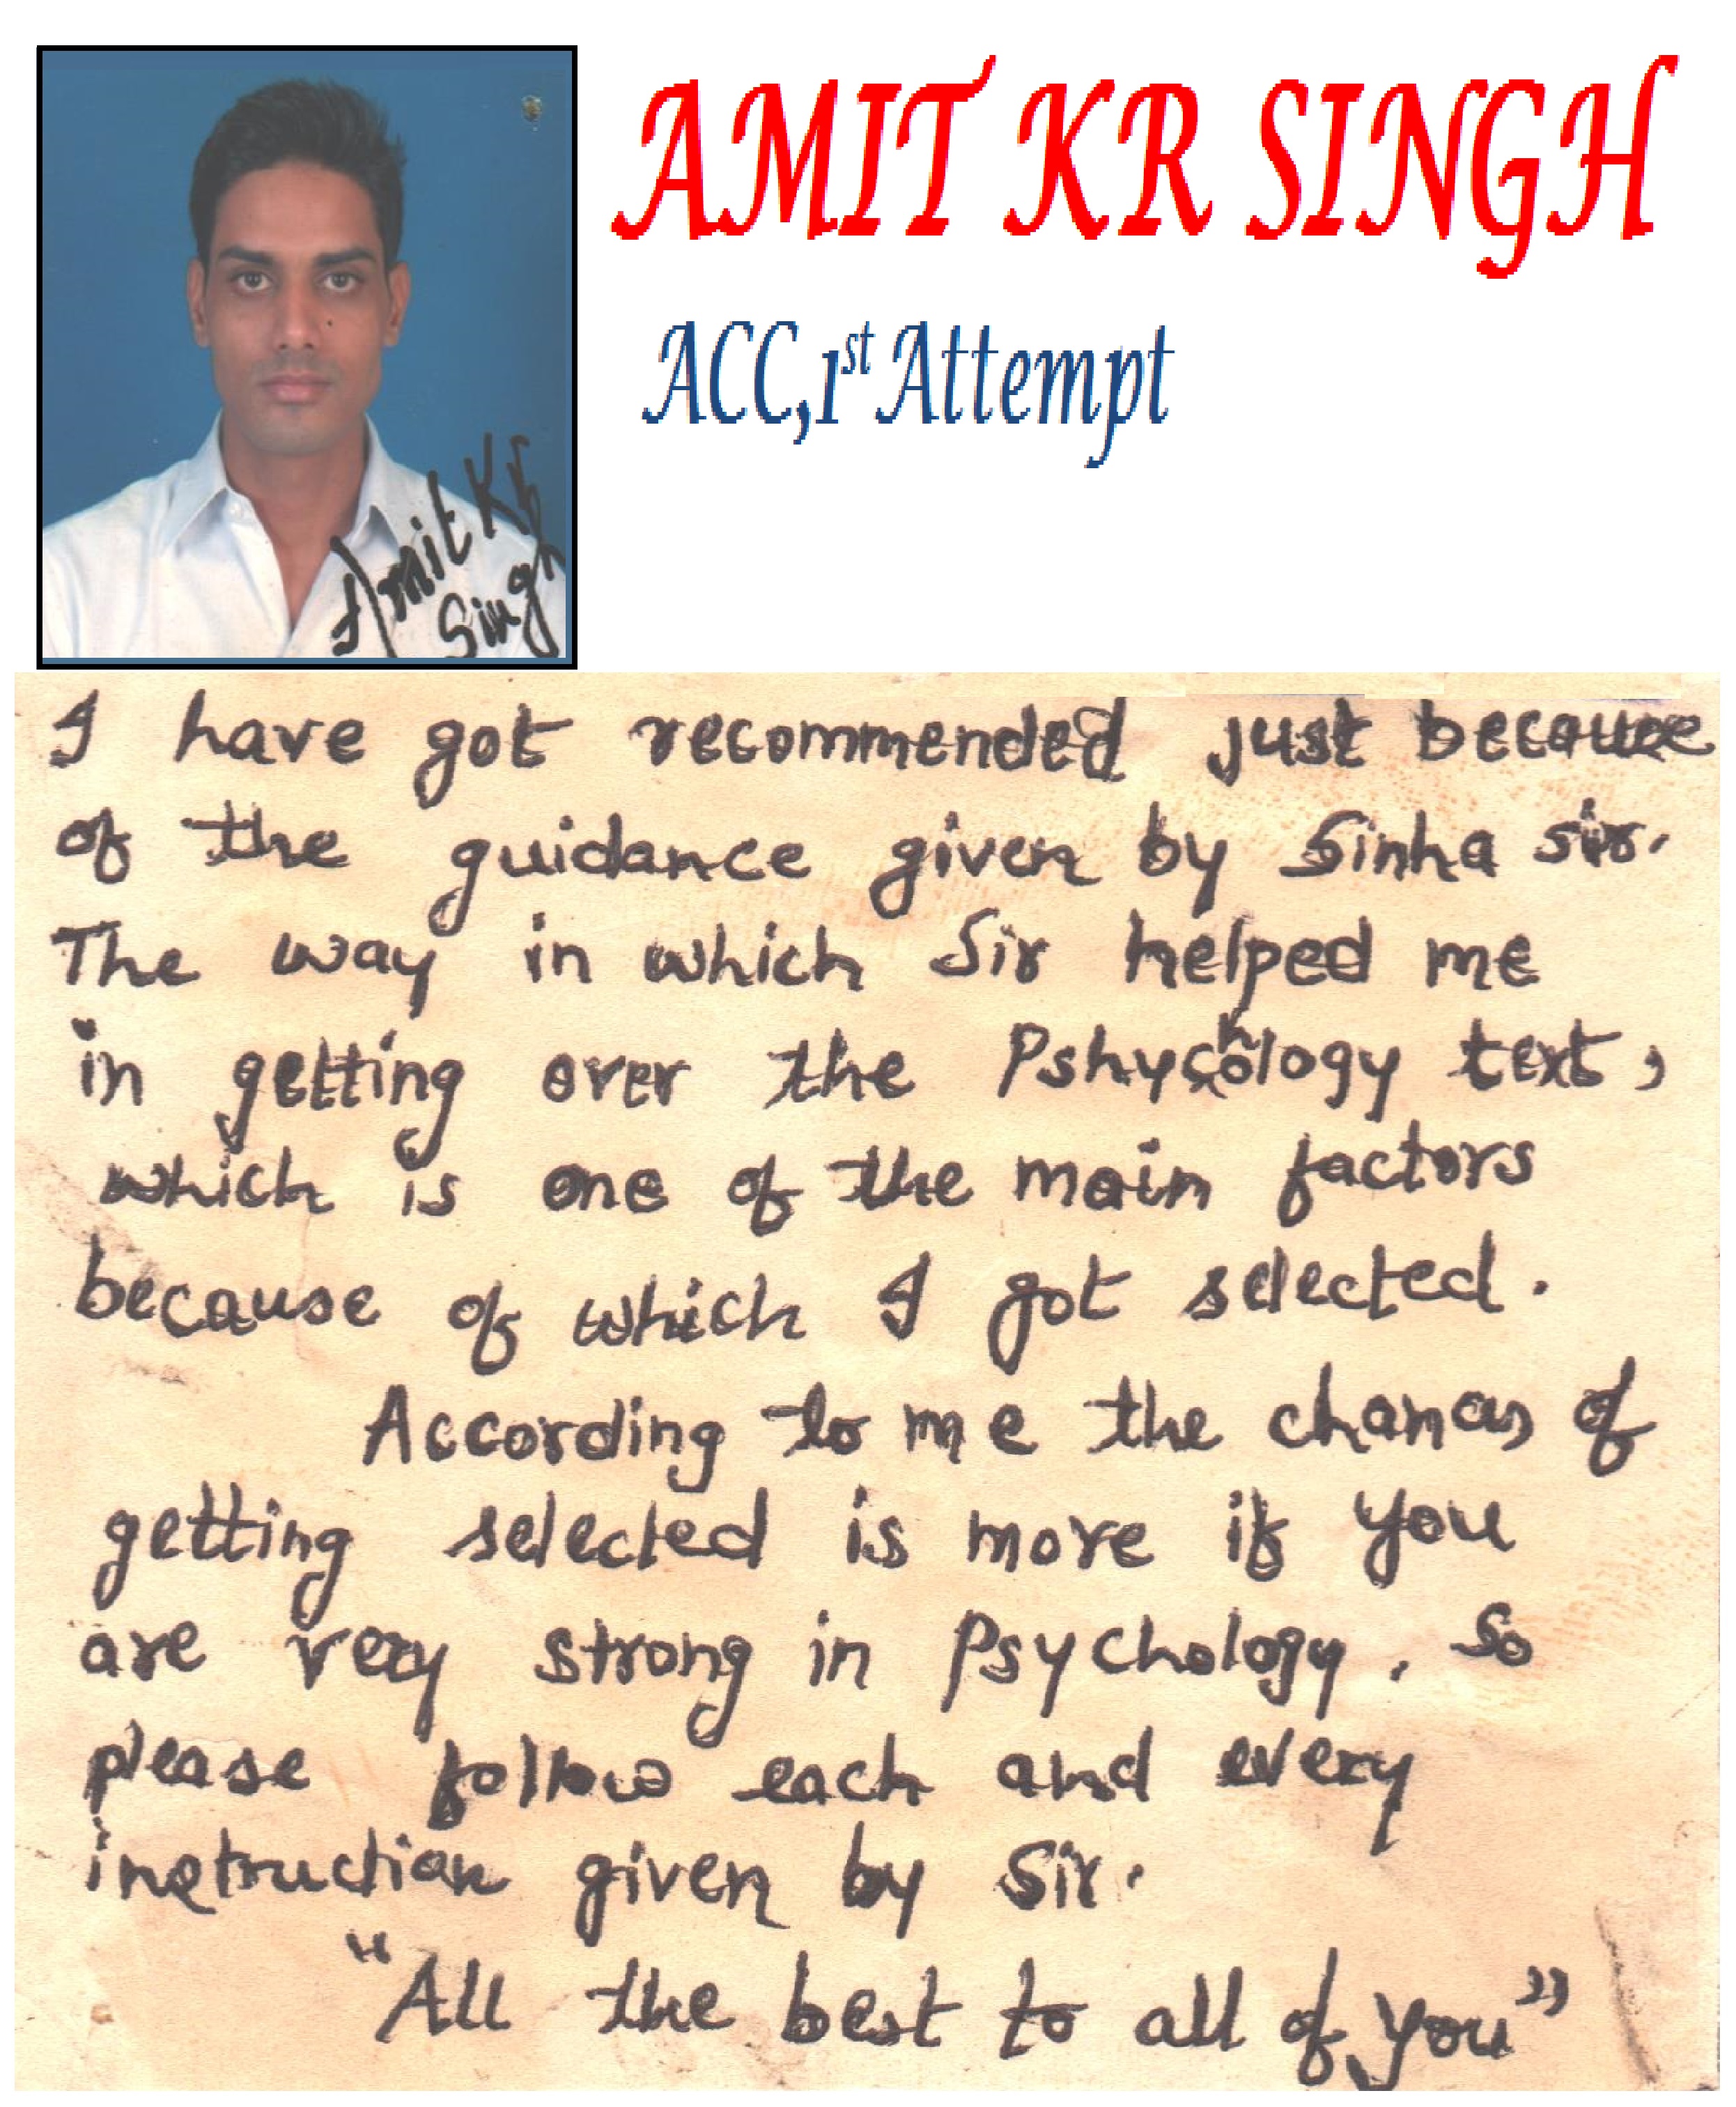 AMIT KR SINGH
ACC,1st Attempt
Amit Kr
Singh
I have got recommended just because
of the guidance given by Sinha sir.
The way in which Sir helped me
in getting over the Pshychology text,
which is one of the main factors
because of which I got selected.
According to me the chances of
getting selected is more if you
are very strong in Psychology. So
please follow each and every
instruction given by Sir.
"All the best to all of you"